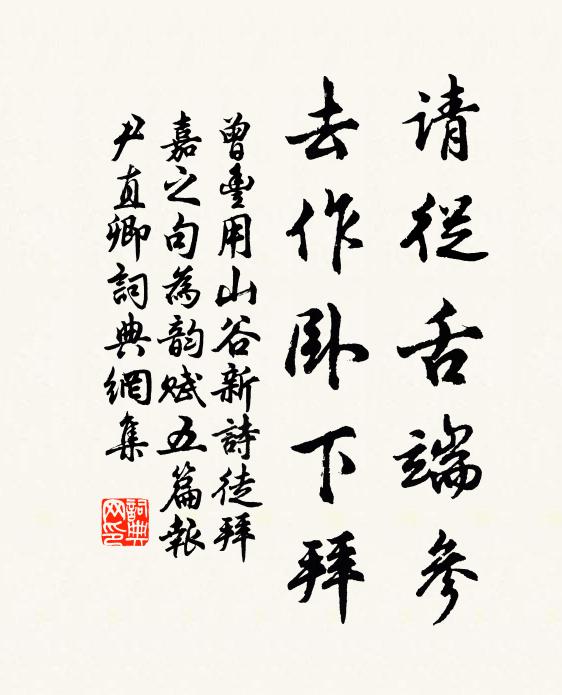 请從舌端參
去作卧下拜
曾豊用山谷新詩徒拜
嘉之句為韵赋五篇報
尹直卿詞典網集
詞典
网印